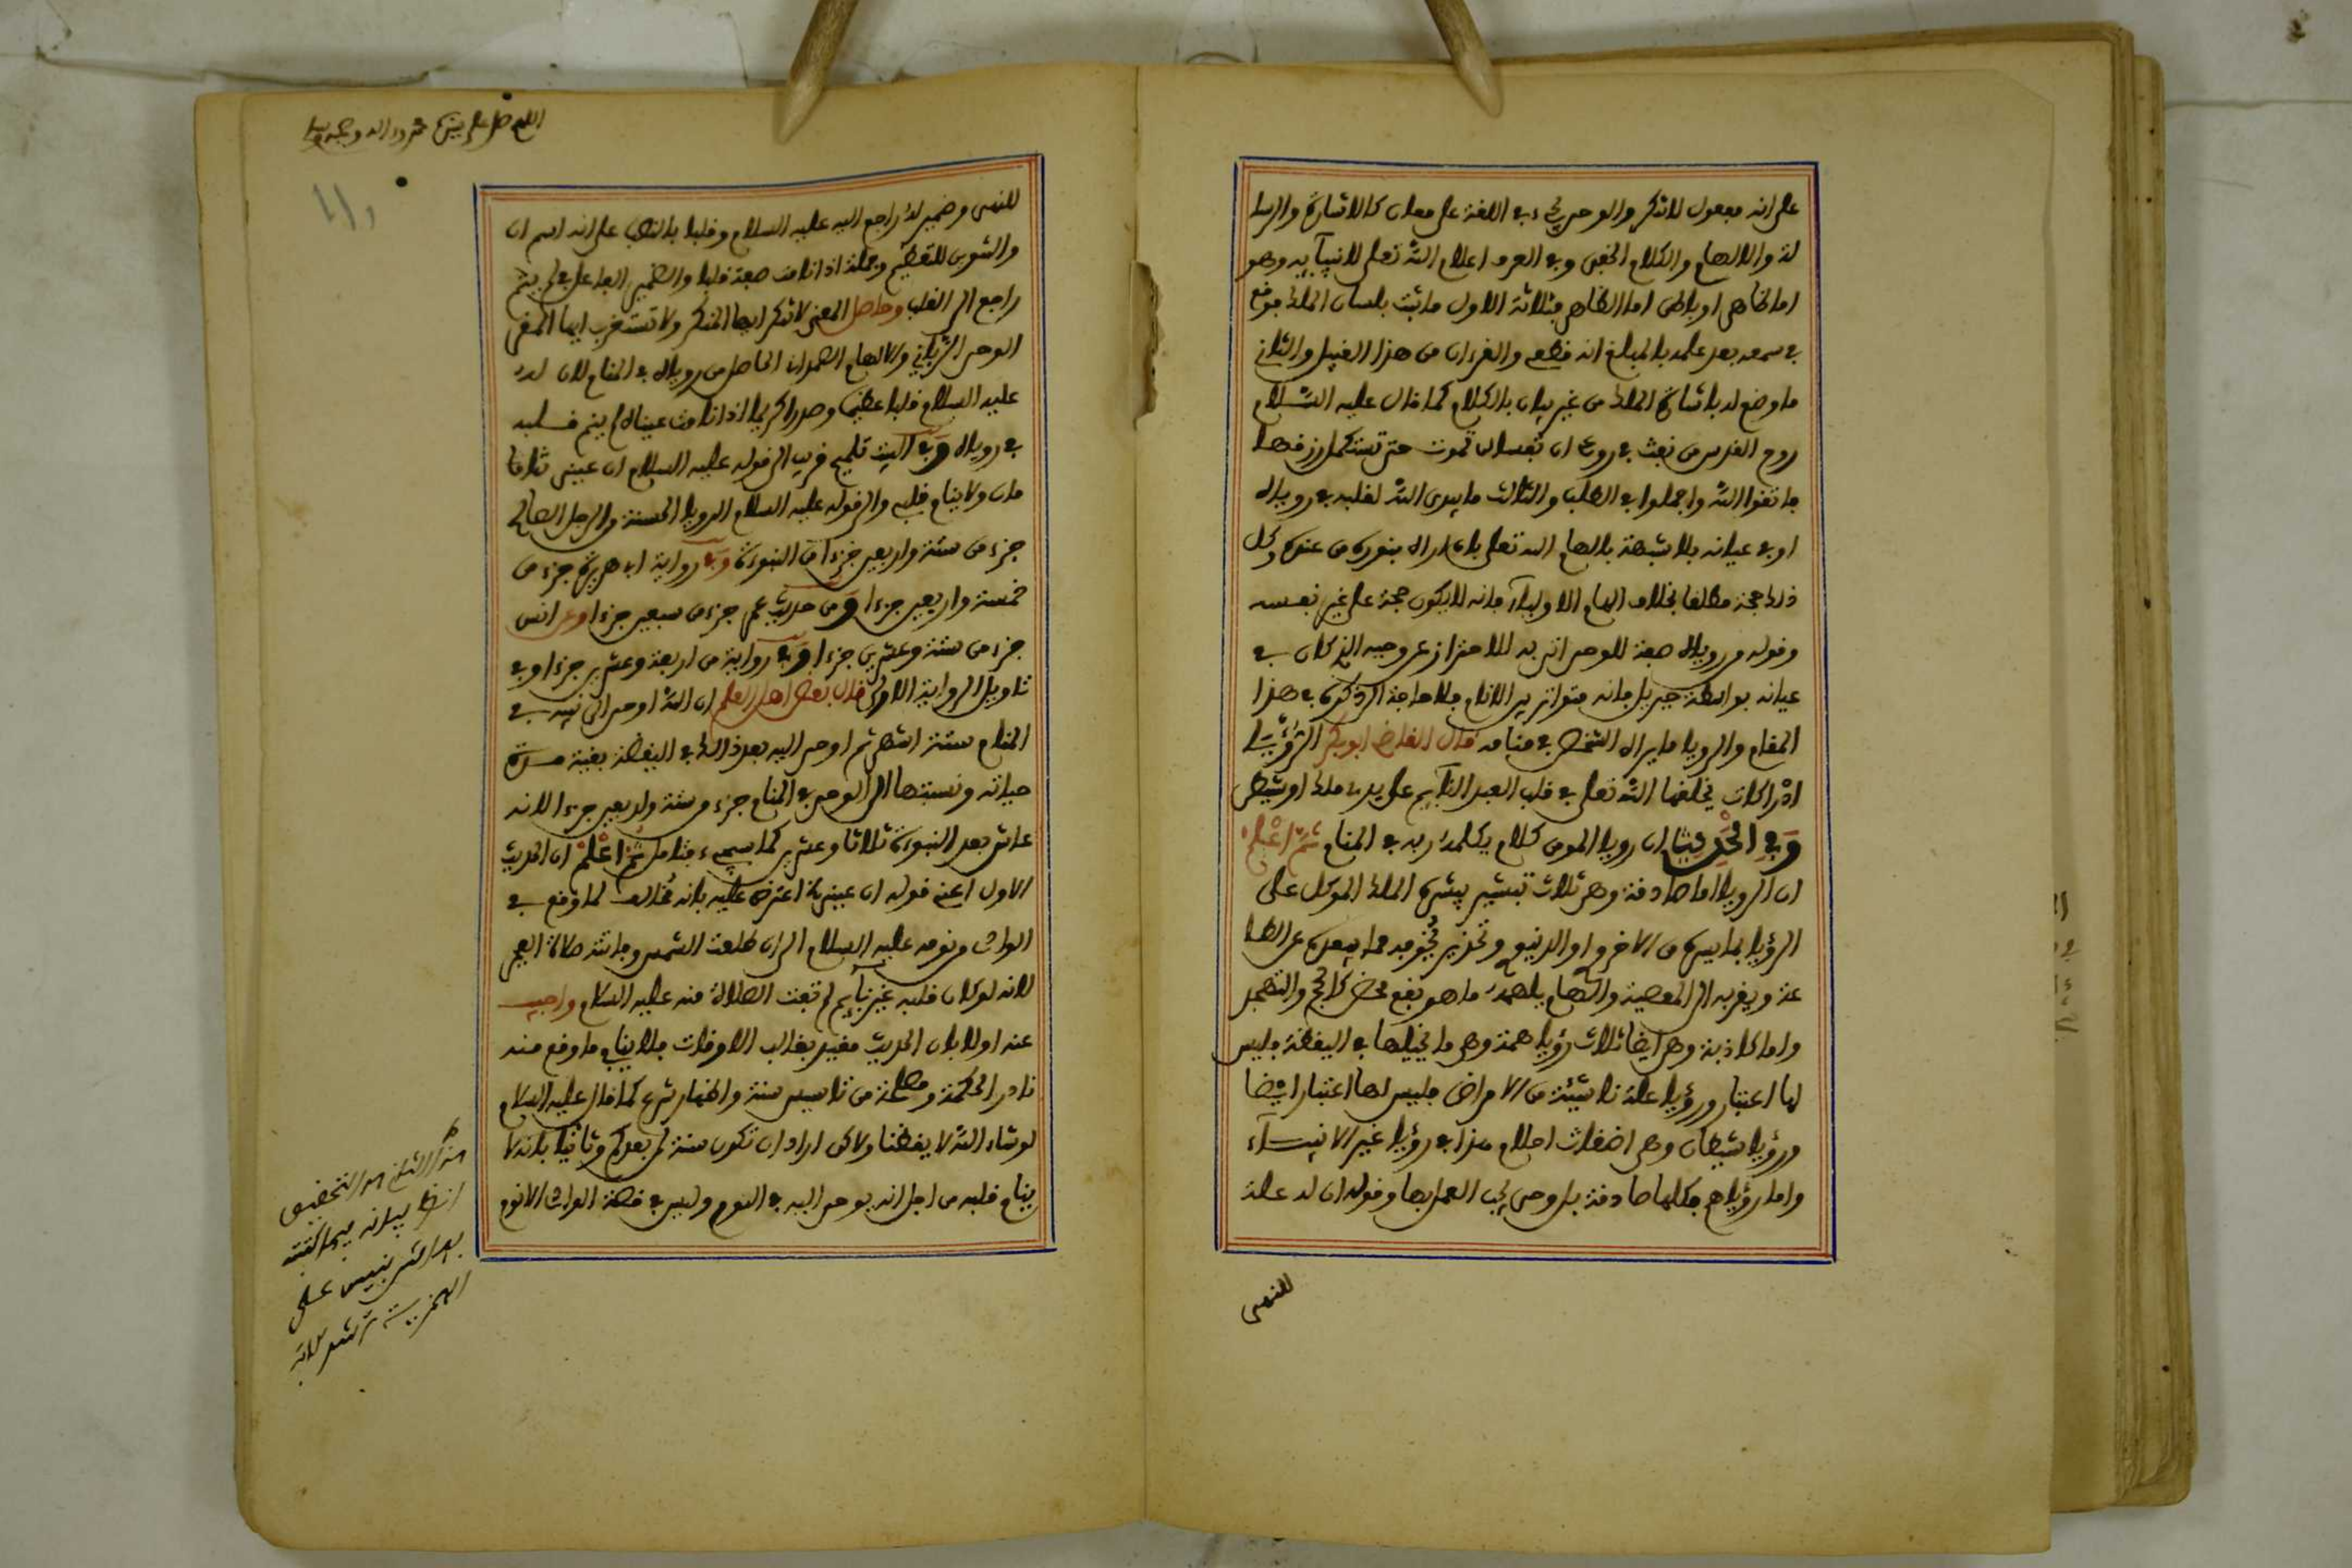 على انه مفعول لاتنكر والوحي يجيء في اللغة على معان كالاشارة والرسا
لة والالهام والكلام الخفي وفي العرف اعلام الله تعلى لانبيآيه وهو
اما ظاهر او باطن اما الظاهر فثلاثة الاول ما ثبت بلسان الملك فوقع
في سمعه بعد علمه بالمبلغ انه قطعي والقرءان من هذا القبيل والثاني
ما وضح له باشارة الملك من غير بيان بالكلام كما قال عليه السّلام
روح القدس نفث في روعي ان نفسا لن تموت حتى تستكمل رزقها
فاتقوا الله واجملوا في الطلب والثالث ما يبدي الله لقلبه في روياه
او في عيانه بلا شبهة بالهام الله تعلى بان اراه بنوره من عنده وكل
ذلك حجة مطلقا بخلاف الهام الاوليآء فانه لا يكون حجة على غير نفسه
وقوله من روياه صفة للوحي اتى به للاحتراز عن وحيه الذي كان في
عيانه بواسطة جبريل فانه متواتر بين الانام فلا حاجة الى ذكره في هذا
المقام والرويا ما يراه الشخص في منامه قال القاضي ابو بكر الرُّؤْيَا
ادراكات يخلقها الله تعلى في قلب العبد النآيم على يدي ملك او شيطن
وَفِي الْحَدِيثِ ان رويا المومن كلام يكلمه ربه في المنام ثُمَّ اعْلَمْ
ان الرويا اما صادقة وهي ثلاث تبشير يبشره الملك الموكل على
الرؤيا بما يسره من الاخروي او الدنيوي وتحذير يخوفه مما يبعده عن الطا
عة ويقربه الى المعصية والهام يلهمه ما هو نفع محض كالحج والتهجد
واما كاذبة وهي ايضا ثلاث رؤيا همة وهو ما تخيلها في اليقظة فليس
لها اعتبار ورؤيا علة ناشئة من الامراض فليس لها اعتبار ايضا
ورؤيا شيطان وهي اضغاث احلام هذا في رؤيا غير الانبيآء
واما رؤياهم فكلها صادقة بل وحي يجب العمل بها وقوله ان له علة
للنهي
اللهم صل على سيدنا محمد واله وصحبه وسلم
للنهي وضمير له راجع اليه عليه السلام وقلبا بالنصب على انه اسم ان
والتنوين للتعظيم وجملة اذا نامت صفة قلبا والضمير الفاعل في لم ينم
راجع الى القلب وحاصل المعنى لا تنكر ايها المنكر ولا تستغرب ايها المقر
الوحي الرباني والالهام الصمداني الحاصل من روياه في المنام لان له
عليه السلام قلبا عظيما وصدرا كريما اذا نامت عيناه لم ينم قلبه
في روياه وفي البيت تلميح قريب الى قوله عليه السلام ان عيني تنا
مان ولا ينام قلبي والى قوله عليه السلام الرويا الحسنة من الرجل الصالح
جزء من ستة واربعين جزءا من النبوءة وفي رواية ابي هريرة جزء من
خمسة واربعين جزءا ومن حديث عمر جزء من سبعين جزءا وعن انس
جزء من ستة وعشرين جزءا وفي رواية من اربعة وعشرين جزءا وفي
تاويل الرواية الاولى قال بعض اهل العلم ان الله اوحى الى نبيه في
المنام ستة اشهر ثم اوحى اليه بعد ذلك في اليقظة بقية مدة
حياته ونسبتها الى الوحي في المنام جزء من ستة واربعين جزءا لانه
عاش بعد النبوءة ثلاثا وعشرين كما سيجيء فتامل ثُمَّ اعْلَمْ ان الحديث
الاول اعني قوله ان عيني الخ اعترض عليه بانه مخالف لما وقع في
الوادي من نومه عليه السلام الى ان طلعت الشمس وفاتته صلاة الفجر
لانه لو كان قلبه غير نآيم لم تفت الصلاة منه عليه السلام واجيب
عنه اولا بان الحديث مقيد بغالب الاوقات فلا ينافي ما وقع منه
نادرا لحكمة ومصلحة من تاسيس سنة واظهار شرع كما قال عليه السلام
لو شاء الله لايقظنا ولاكن اراد ان تكون سنة لمن بعدكم وثانيا بانه لا
ينام قلبه من اجل انه يوحى اليه في النوم وليس في قصة الوادي الا نوم
هذا الثاني هو التحقيق
انظر بيانه فيما كتبته
بعد الشر بنيس على
الهمزية